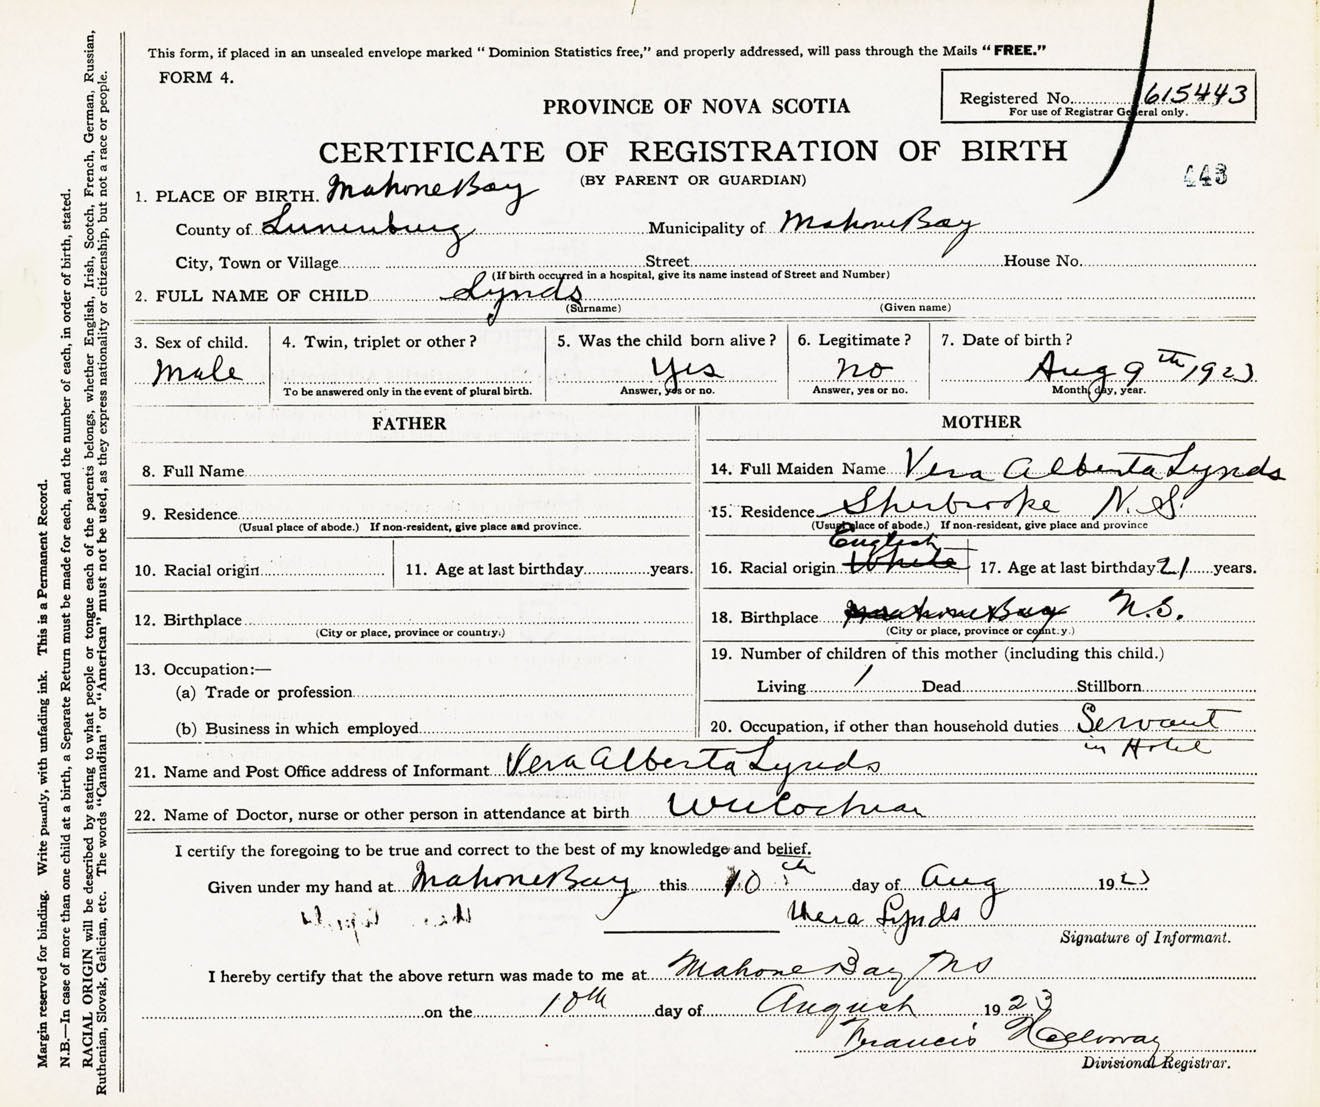 This form, if placed in an unsealed envelope marked "Dominion Statistics free," and properly addressed, will pass through the Mails "FREE."
FORM 4.
Registered No. 615443
For use of Registrar General only.
PROVINCE OF NOVA SCOTIA
CERTIFICATE OF REGISTRATION OF BIRTH
(BY PARENT OR GUARDIAN)
443
1. PLACE OF BIRTH. Mahone Bay
County of Lunenburg Municipality of Mahone Bay
City, Town or Village Street House No.
(If birth occurred in a hospital, give its name instead of Street and Number)
2. FULL NAME OF CHILD Lynds
(Surname) (Given name)
3. Sex of child. 4. Twin, triplet or other? 5. Was the child born alive? 6. Legitimate? 7. Date of birth?
Male Yes no Aug 9th 1923
To be answered only in the event of plural birth. Answer, yes or no. Answer, yes or no. Month, day, year.
FATHER MOTHER
8. Full Name
9. Residence
(Usual place of abode.) If non-resident, give place and province.
10. Racial origin 11. Age at last birthday years.
12. Birthplace
(City or place, province or country.)
13. Occupation:—
(a) Trade or profession
(b) Business in which employed
14. Full Maiden Name Vera Alberta Lynds
15. Residence Sherbrooke N.S.
(Usual place of abode.) If non-resident, give place and province
English
16. Racial origin White 17. Age at last birthday 21 years.
18. Birthplace Mahone Bay N.S.
(City or place, province or country.)
19. Number of children of this mother (including this child.)
Living 1 Dead Stillborn
20. Occupation, if other than household duties Servant
in Hotel
21. Name and Post Office address of Informant Vera Alberta Lynds
22. Name of Doctor, nurse or other person in attendance at birth Cochran
I certify the foregoing to be true and correct to the best of my knowledge and belief.
Given under my hand at Mahone Bay this 10th day of Aug 1923
Vera Lynds
Signature of Informant.
I hereby certify that the above return was made to me at Mahone Bay NS
on the 10th day of August 1923
Francis Holloway
Divisional Registrar.
Margin reserved for binding. Write plainly, with unfading ink. This is a Permanent Record.
N.B.—In case of more than one child at a birth, a Separate Return must be made for each, and the number of each, in order of birth, stated.
RACIAL ORIGIN will be described by stating to what people or tongue each of the parents belongs, whether English, Irish, Scotch, French, German, Russian,
Ruthenian, Slovak, Galician, etc. The words "Canadian" or "American" must not be used, as they express nationality or citizenship, but not a race or people.